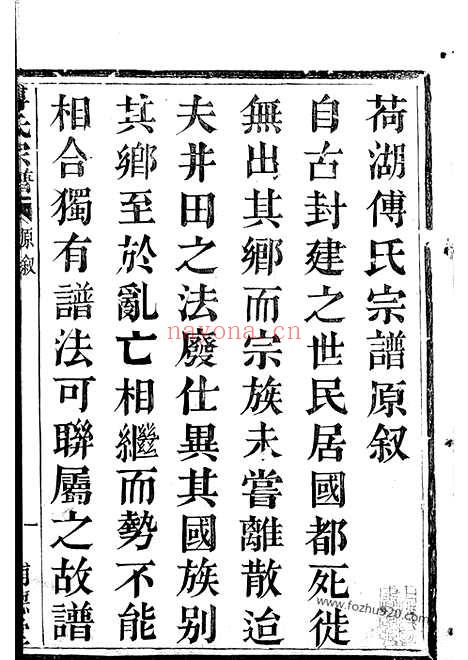 荷湖傅氏宗譜原叙
自古封建之世民居國都死徙
無出其鄉而宗族未嘗離散迨
夫井田之法廢仕異其國族别
其鄉至於亂亡相繼而勢不能
相合獨有譜法可聯屬之故譜
氏宗譜 原叙 一
nayona.cn
www.fozhu920.com